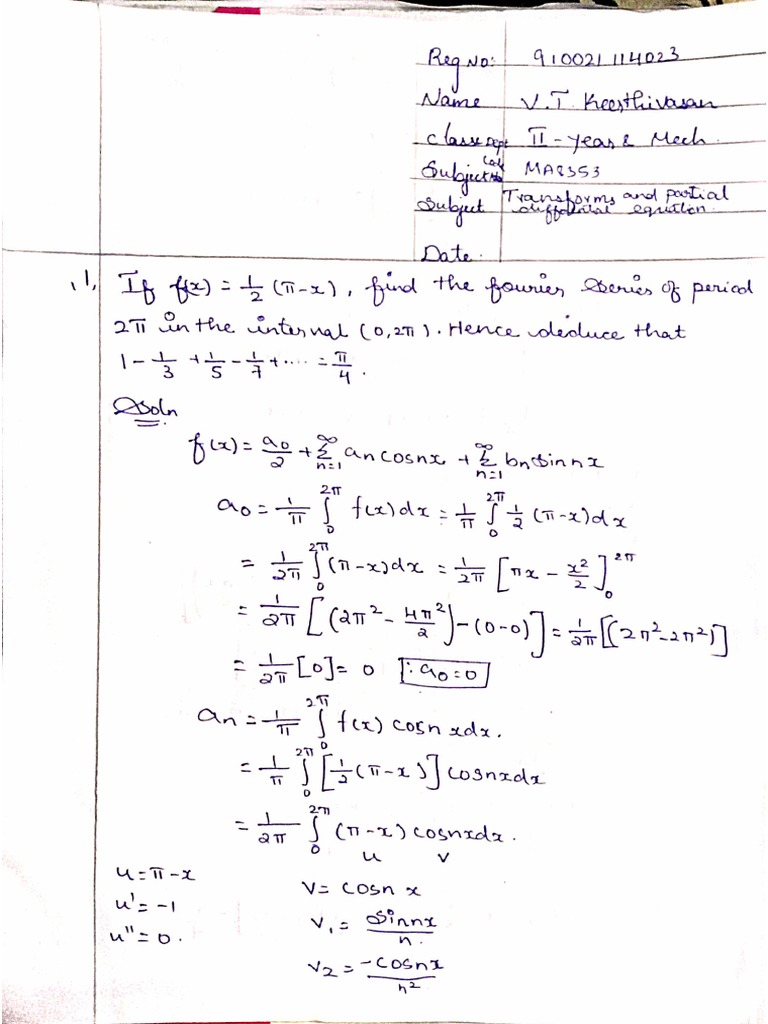 Reg No: 910021114023
Name V.T. Keerthivasan
Classe Dept II - year & Mech.
Subject Code MA8353
Subject Transforms and partial
differential equation.
Date.
1, If f(x) = 1/2 (π-x), find the fourier series of period
2π in the interval (0,2π). Hence deduce that
1 - 1/3 + 1/5 - 1/7 + .... = π/4.
Soln
f(x) = a0/2 + ∞Σn=1 an cosnx + ∞Σn=1 bn sin nx
a0 = 1/π ∫0^2π f(x)dx = 1/π ∫0^2π 1/2 (π-x)dx
= 1/2π ∫0^2π (π-x)dx = 1/2π [πx - x²/2]0^2π
= 1/2π [(2π² - 4π²/2) - (0-0)] = 1/2π [(2π²-2π²)]
= 1/2π [0] = 0 ∴a0=0
an = 1/π ∫0^2π f(x) cosn xdx.
= 1/π ∫0^2π [1/2 (π-x)] cosnxdx
= 1/2π ∫0^2π (π-x) cosnxdx.
u v
u = π-x v = cosn x
u' = -1 v1 = sinnx/n.
u'' = 0. v2 = -cosnx/n²